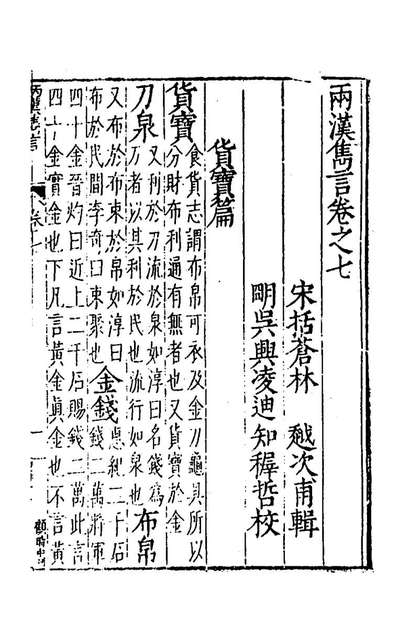 兩漢雋言卷之七
宋括蒼林　越次甫輯
明吳興凌迪知穉哲校
貨寶篇
貨寶　食貨志謂布帛可衣及金刀龜貝所以
分財布利通有無者也又貨寶於金
刀泉　又利於刀流於泉如淳曰名錢為
刀者以其利於民也流行如泉也　布帛
又布於布束於帛如淳曰
布於民間李奇曰束聚也　金錢　惠紀二千石
錢二萬將軍
四十金晉灼曰近上二千石賜錢二萬此言
四十金實金也下凡言黃金真金也不言黃
兩漢雋言